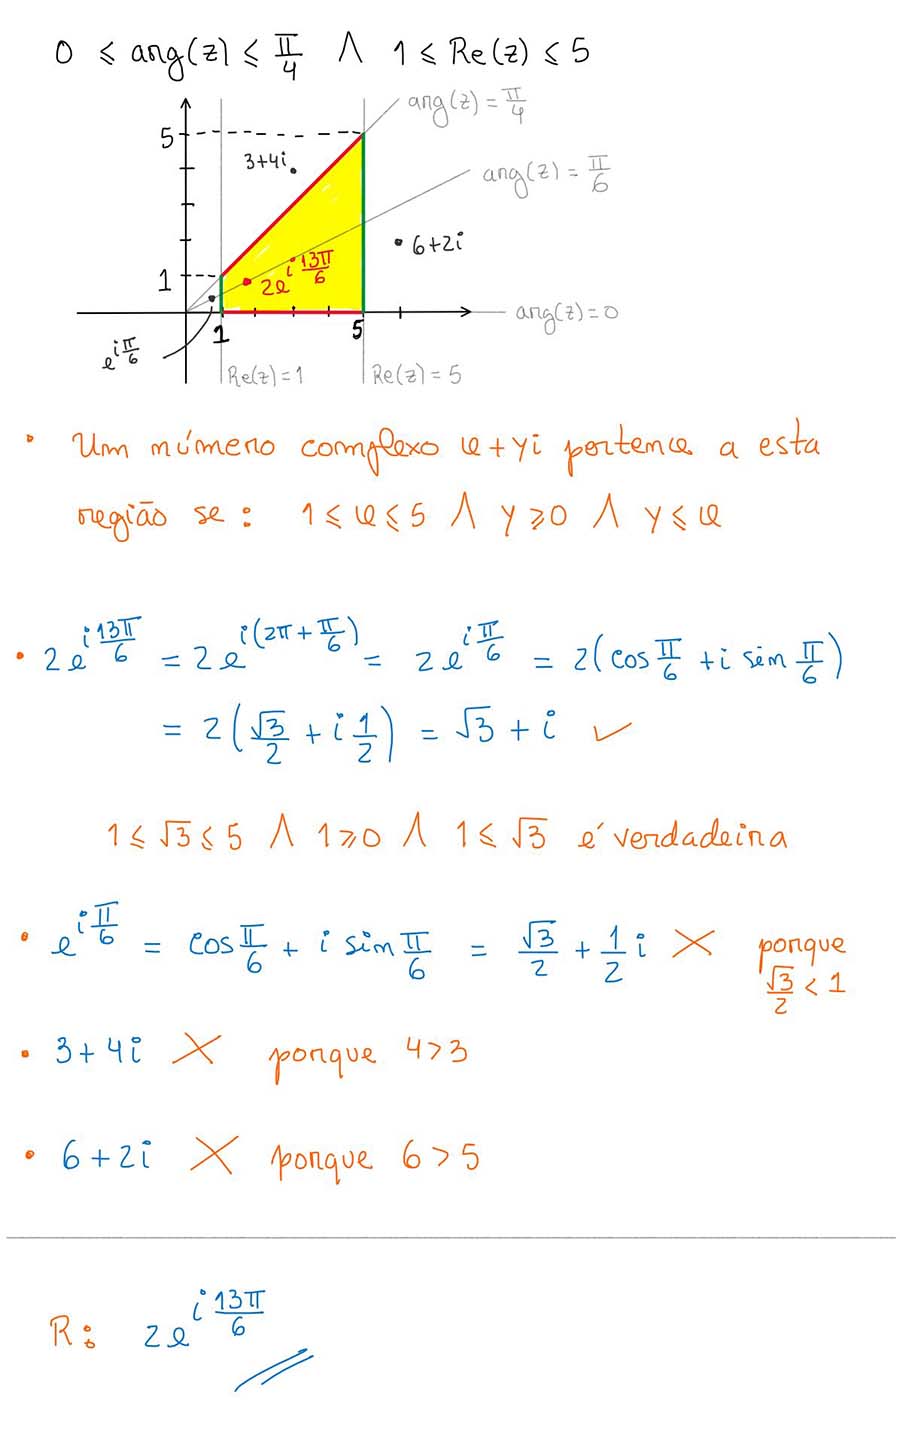 0 ≤ arg(z) ≤ π/4 ∧ 1 ≤ Re(z) ≤ 5
arg(z) = π/4
5
3+4i
arg(z) = π/6
6+2i
2e^(i 13π/6)
1
arg(z) = 0
1
5
e^(i π/6)
Re(z) = 1
Re(z) = 5
• Um número complexo x + yi pertence a esta
região se: 1 ≤ x ≤ 5 ∧ y ≥ 0 ∧ y ≤ x
• 2e^(i 13π/6) = 2e^(i(2π + π/6)) = 2e^(i π/6) = 2(cos π/6 + i sin π/6)
= 2(√3/2 + i 1/2) = √3 + i ✓
1 ≤ √3 ≤ 5 ∧ 1 ≥ 0 ∧ 1 ≤ √3 é verdadeira
• e^(i π/6) = cos π/6 + i sin π/6 = √3/2 + 1/2 i ✗ porque
√3/2 < 1
• 3 + 4i ✗ porque 4 > 3
• 6 + 2i ✗ porque 6 > 5
R: 2e^(i 13π/6)